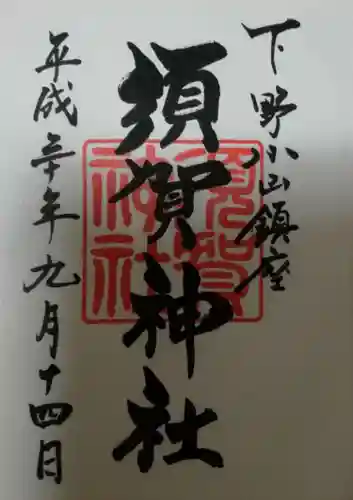 下野小山鎮座
須賀神社
平成三十年九月十四日
須賀
神社